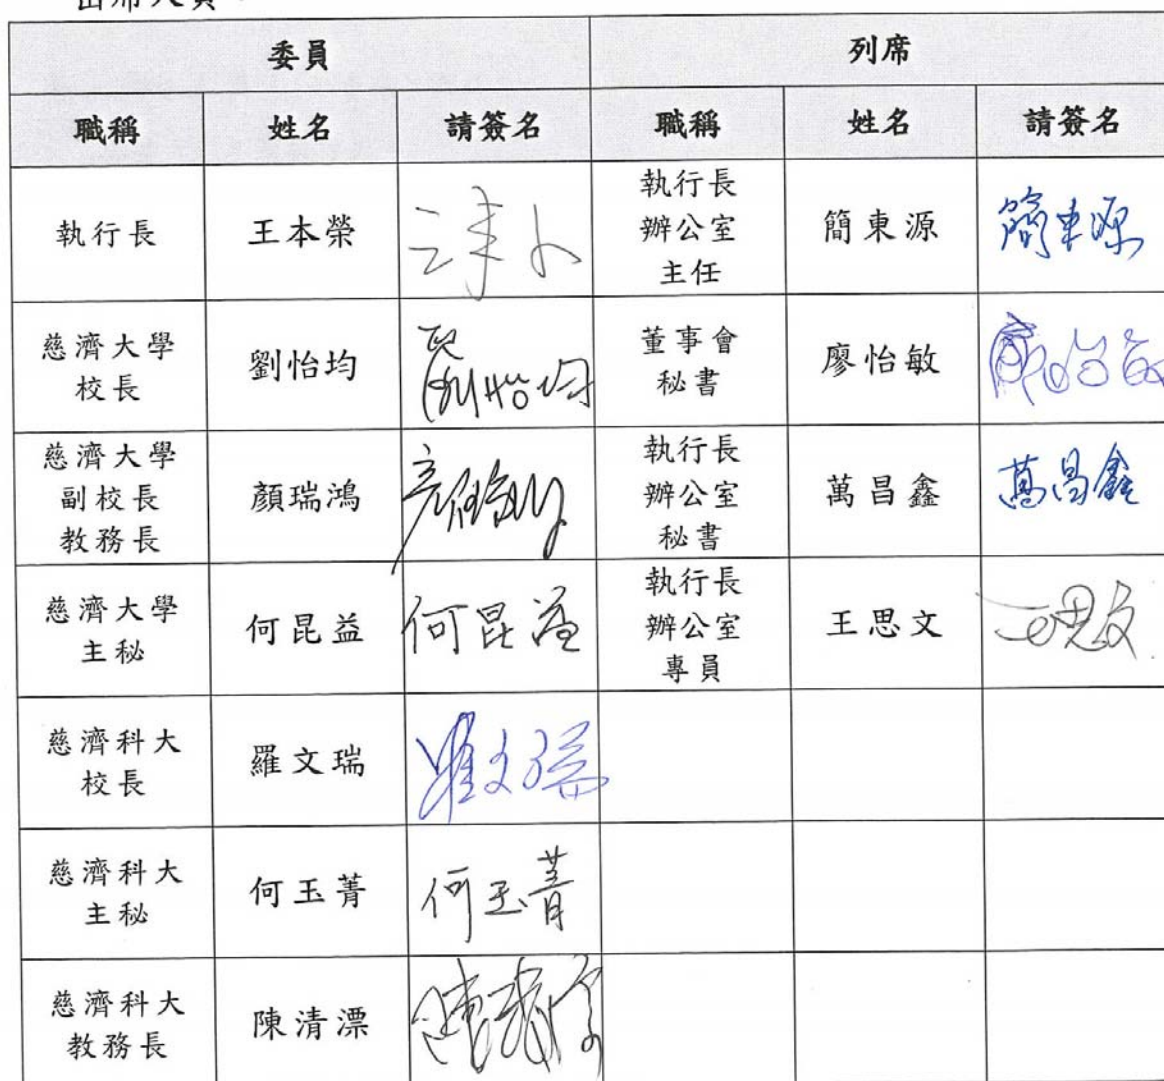 出席人員：
委員 列席
職稱 姓名 請簽名 職稱 姓名 請簽名
執行長 王本榮 執行長
辦公室
主任 簡東源 簡東源
慈濟大學
校長 劉怡均 劉怡均 董事會
秘書 廖怡敏 廖怡敏
慈濟大學
副校長
教務長 顏瑞鴻 執行長
辦公室
秘書 萬昌鑫 萬昌鑫
慈濟大學
主秘 何昆益 何昆益 執行長
辦公室
專員 王思文 王思文
慈濟科大
校長 羅文瑞 羅文瑞
慈濟科大
主秘 何玉菁 何玉菁
慈濟科大
教務長 陳清漂